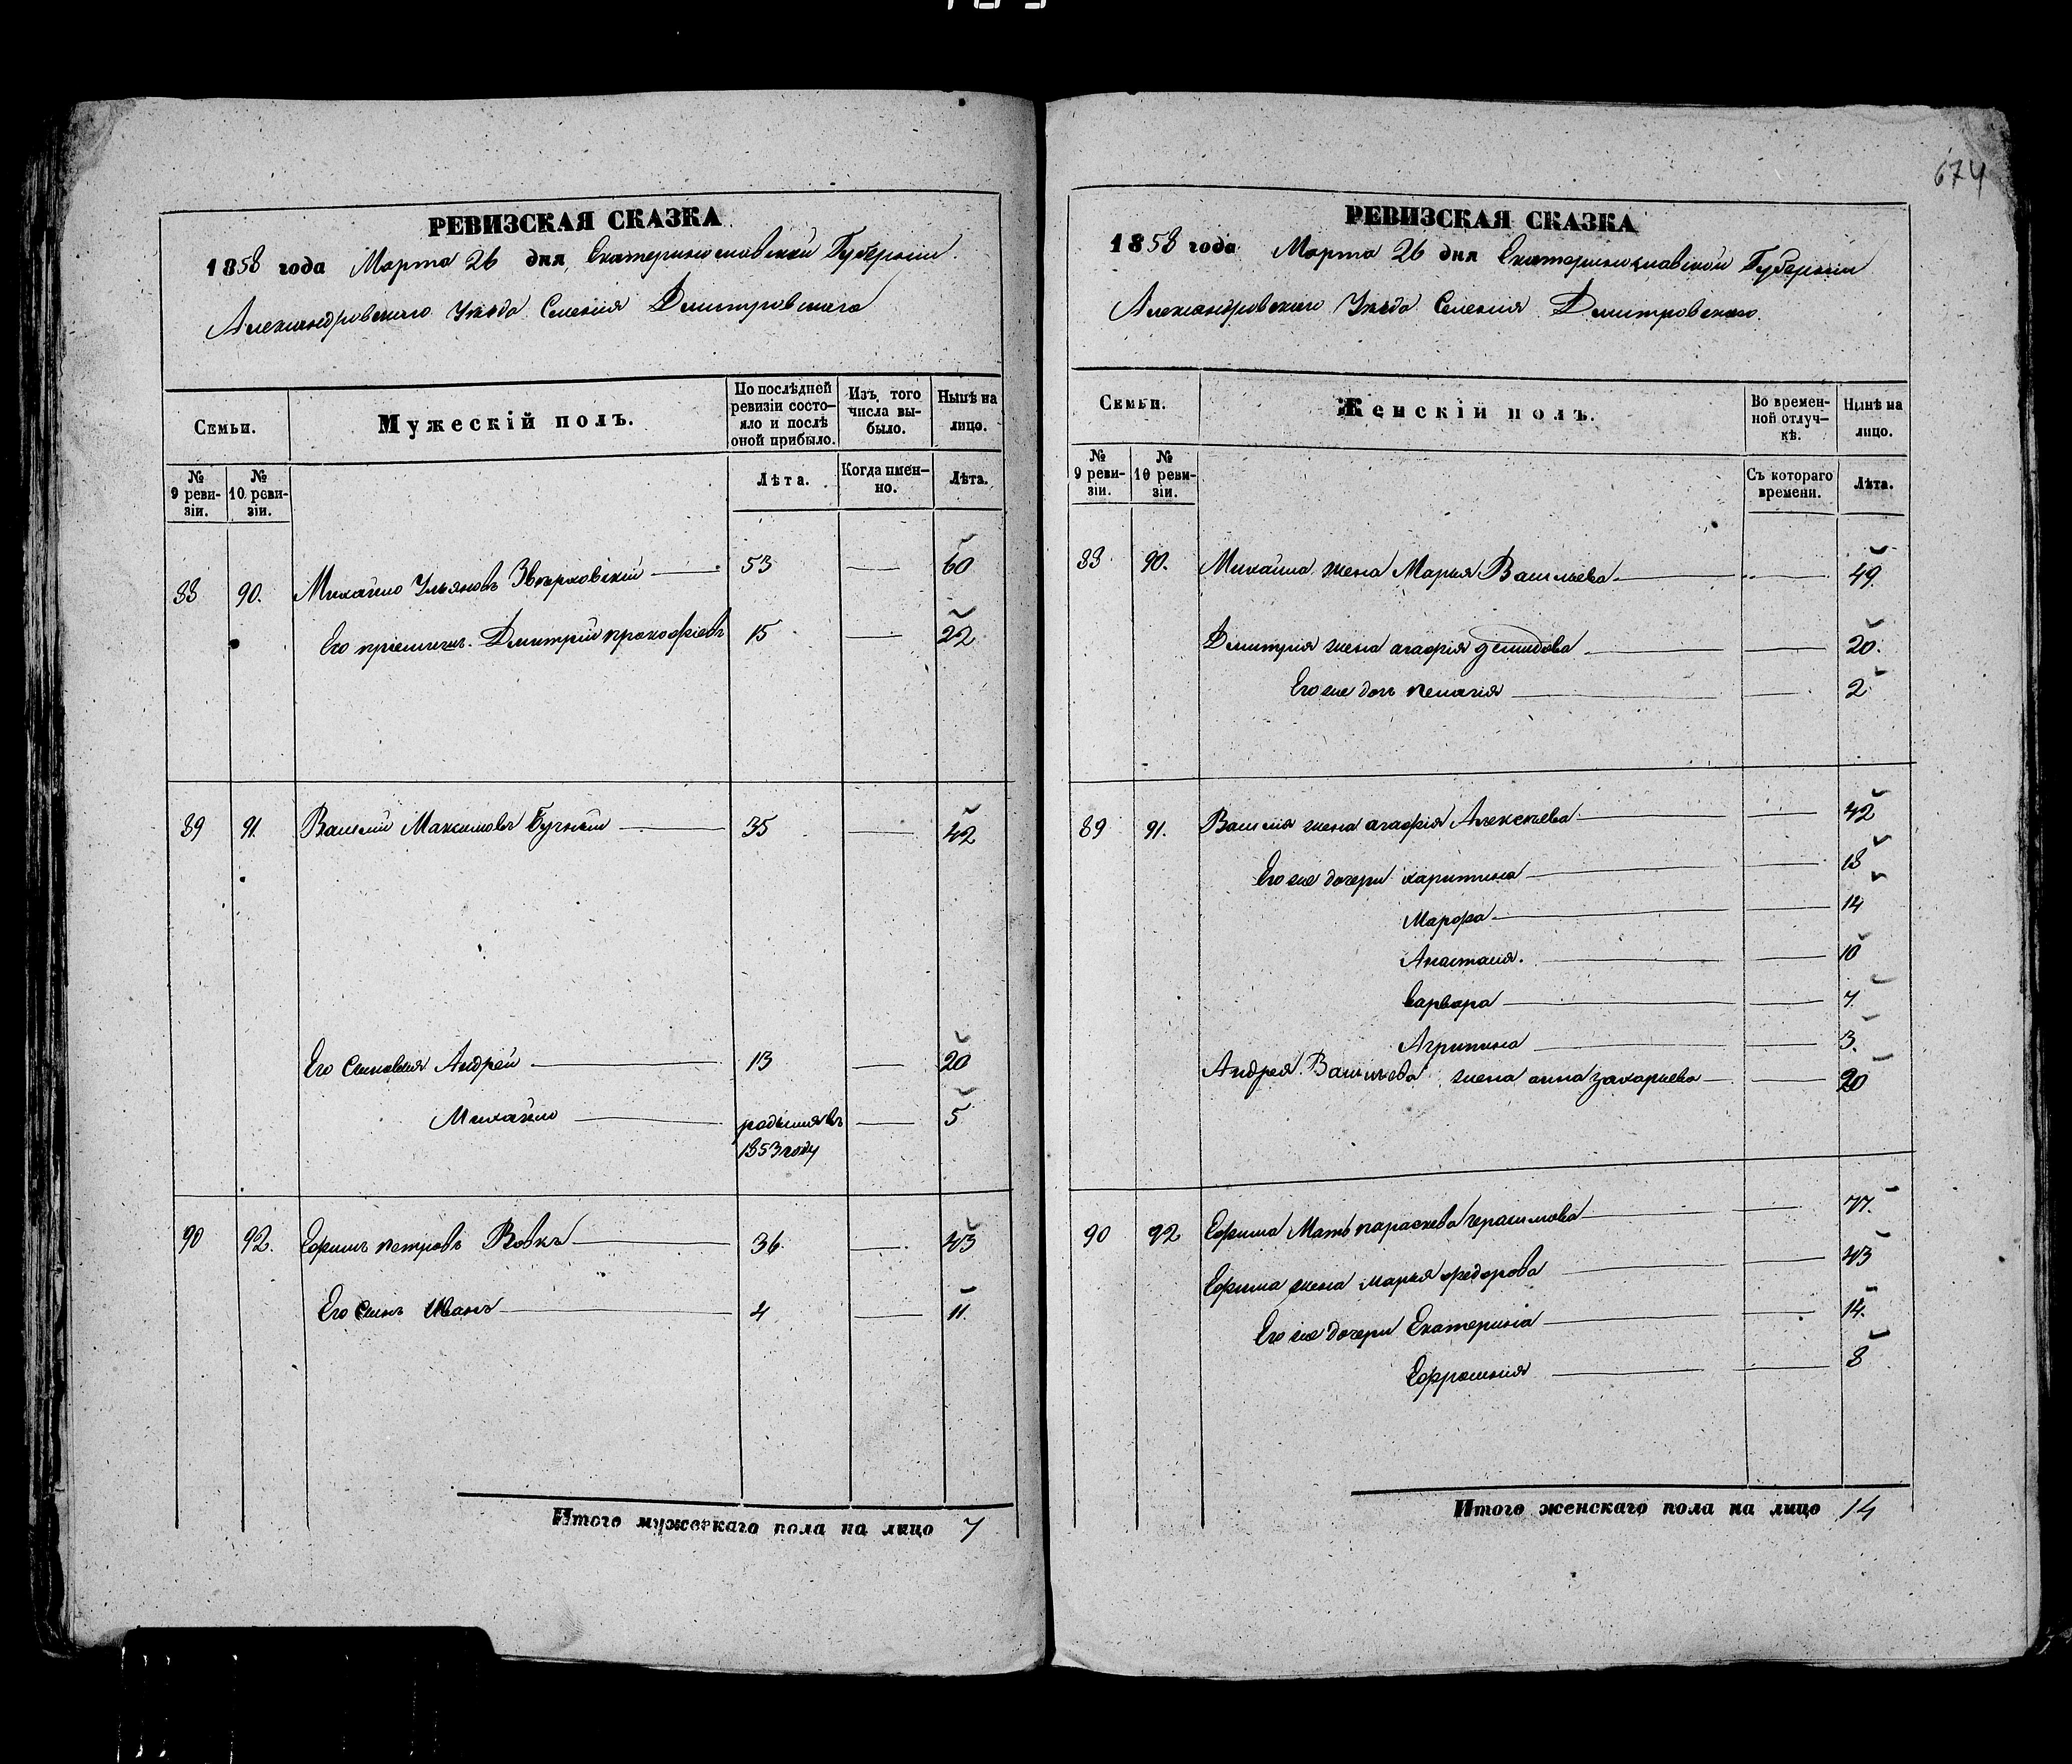 674
РЕВИЗСКАЯ СКАЗКА
1858 года Марта 26 дня, Екатеринославской Губернии.
Александровского Уѣзда Селенія Дмитровского
Семьи.
Мужескій полъ.
По послѣдней ревизіи состо-
яло и послѣ
оной прибыло.
Изъ того
числа вы-
было.
Нынѣ на
лицо.
№
9 реви-
зіи.
№
10 реви-
зіи.
Лѣта.
Когда имен-
но.
Лѣта.
88 90. Михайло Ульяновъ Звѣрховскій 53 60
Его пріемышъ. Дмитрій прокофіевъ 15 22
89 91. Василій Максимовъ 35 42
Его сыновья Андрей 13 20
Михайло родился въ 5
1853 году
90 92. Ефимъ петровъ Вовкъ 36. 43
Его сынъ Иванъ 4 11.
Итого мужескаго пола на лицо 7
РЕВИЗСКАЯ СКАЗКА
1858 года Марта 26 дня Екатеринославской Губернии
Александровского Уѣзда Селенія Дмитровского.
Семьи.
Женскій полъ.
Во времен-
ной отлуч-
кѣ.
Нынѣ на
лицо.
№
9 реви-
зіи.
№
10 реви-
зіи.
Съ котораго
времени.
Лѣта.
88 90. Михайла жена Марья Васильева 49.
Дмитрія жена агафія демидова 20.
Его же дочь пелагія 2
89 91. Василія жена агафія Алексѣева 42
Его же дочери харитина 18
Марфа 14
Анастасія. 10
варвара 7.
Агрипина 3.
Андрея Васильева жена анна захарьева 20
90 92 Ефима Мать параскева герасимова 77.
Ефима жена марья федорова 43
Его же дочери Екатерина 14.
Ефросинія 8
Итого женскаго пола на лицо 14